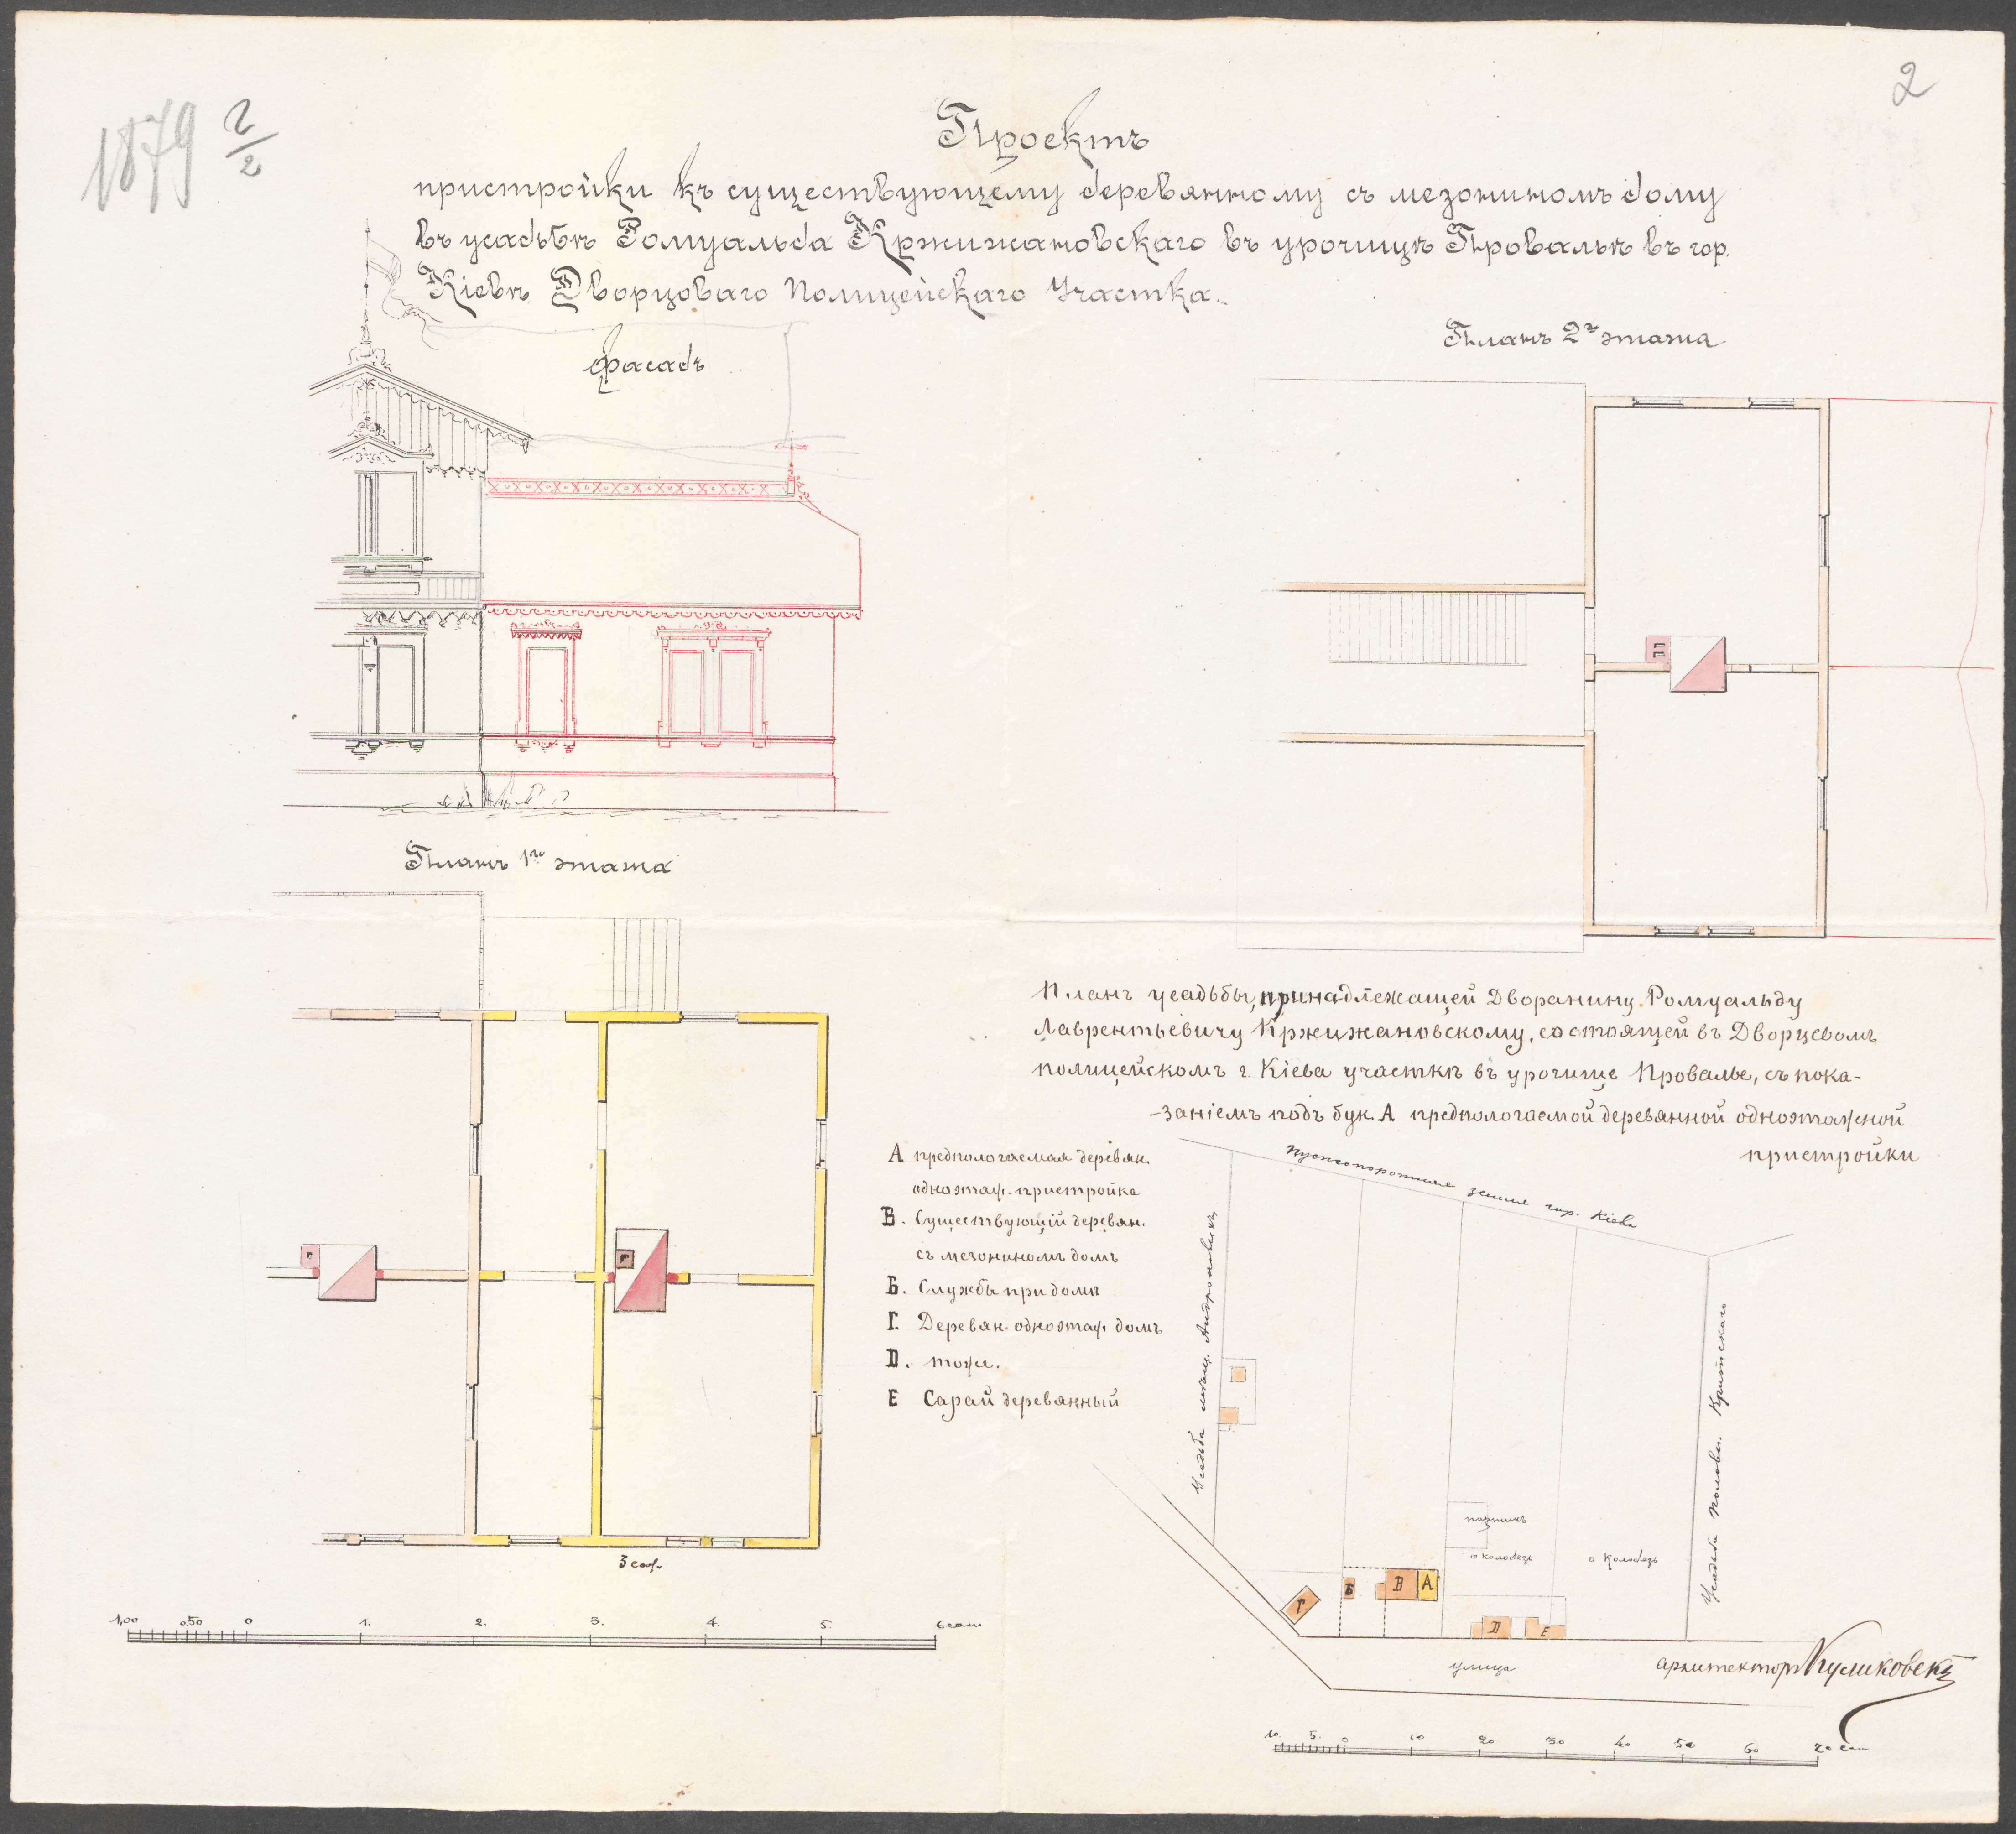 1879 2/2
2
Проектъ
пристройки къ существующему деревянному съ мезониномъ дому
въ усадьбѣ Ромуальда Кржижановскаго въ урочищѣ Провальѣ въ гор.
Кіевѣ Дворцоваго Полицейскаго Участка.
фасадъ
Планъ 2го этажа
Планъ 1го этажа
Планъ усадьбы, принадлежащей Дворянину Ромуальду
Лаврентьевичу Кржижановскому, состоящей въ Дворцевомъ
полицейскомъ г. Кіева участкѣ въ урочище Провалье, съ пока-
-заніемъ подъ бук. А предпологаемой деревянной одноэтажной
пристройки
А предпологаемая деревян.
одноэтаж. пристройка
В. Существующій деревян.
съ мезониномъ домъ
Б. Службы при домѣ
Г. Деревян. одноэтаж. домъ
D. тоже.
Е Сарай деревянный
Пустопорожняя земля гор. Кіева
Усадьба мѣщ.
Усадьба
колодезь
о Колодезь
Г
Б
В
А
D
Е
улица
архитекторъ Куликовскій
3 саж.
1,00 0,50 0 1. 2. 3. 4. 5. 6 саж
10. 5. 0 10 20 30 40 50 60 70 саж